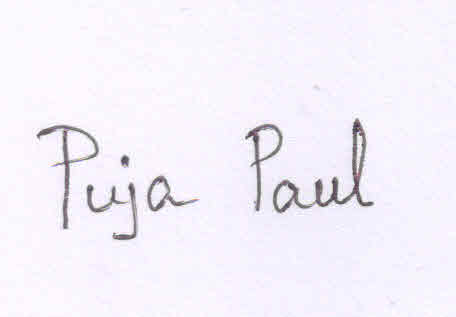 Puja Paul